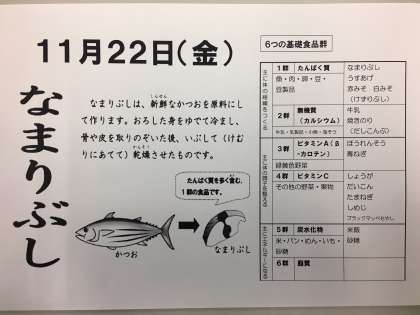 11月22日(金)
なまりぶし
なまりぶしは、新鮮なかつおを原料にし
て作ります。おろした身をゆでて冷まし、
骨や皮を取りのぞいた後、いぶして(けむ
りにあてて)乾燥させたものです。
たんぱく質を多く含む、
1群の食品です。
かつお
なまりぶし
6つの基礎食品群
主に体の組織をつくる
1群 たんぱく質
魚・肉・卵・豆・
豆製品
なまりぶし
うすあげ
赤みそ 白みそ
(けずりぶし)
2群 無機質
(カルシウム)
牛乳・乳製品・小魚・海そう
牛乳
焼きのり
(だしこんぶ)
主に体の調子を整える
3群 ビタミンA(β
-カロテン)
緑黄色野菜
ほうれんそう
青ねぎ
4群 ビタミンC
その他の野菜・果物
しょうが
だいこん
たまねぎ
しめじ
5群 炭水化物
米・パン・めん・いも・
砂糖
米飯
砂糖
6群 脂質